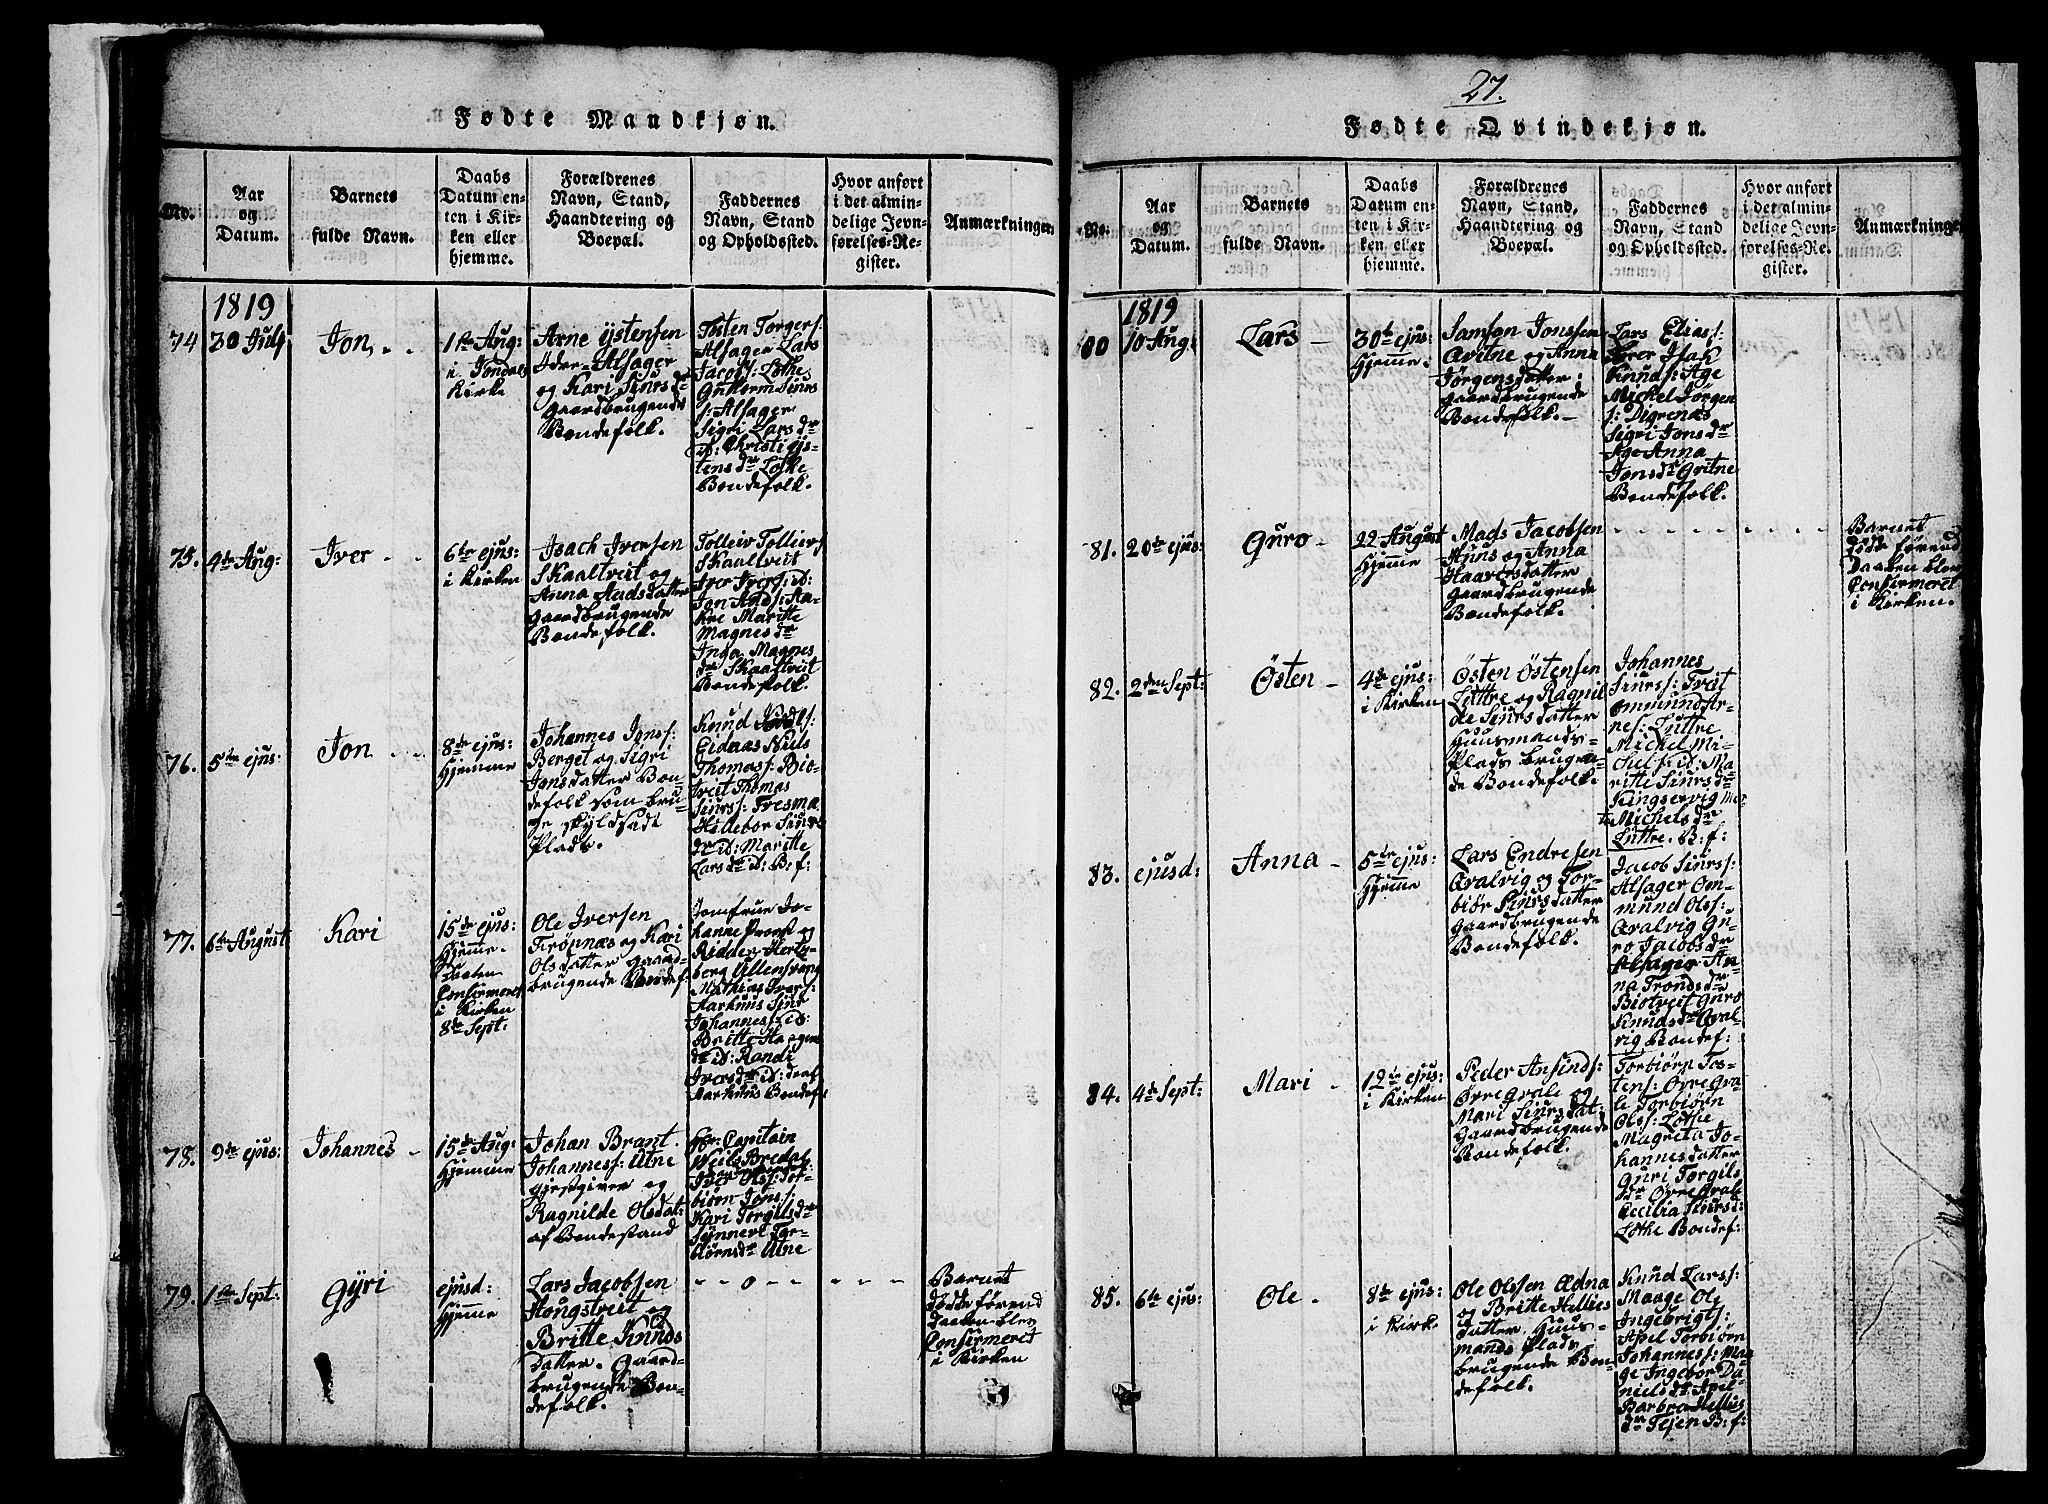 27.
Fødte Mandkjøn.
No.
Aar
og
Datum.
Barnets
fulde Navn.
Daabs
Datum en-
ten i Kir-
ken eller
hjemme.
Forældrenes
Navn, Stand,
Haandtering og
Boepæl.
Faddernes
Navn, Stand
og Opholdssted.
Hvor anført
i det almin-
delige Jevn-
førelses-Re-
gister.
Anmærkninger
1819
74
30 July
Jon, - -
1ste Aug:
i Jondals
Kirke
Arne Ÿstensen
Alsager
og Kari Siursd
gaardbrugende
Bondefolk.
Tosten Torgers:
Alsager Lars
Jacobs: Lothe
Guttorm Siurs
s: Alsager
Sigri Lars dr
id: Christi Øjs-
tens dr Lothe
Bondefolk.
75.
4de Aug:
Iver - -
6te ejus:
i Kirken
Isach Iversen
Skaaltveit og
Anna Aadsdatter
gaardbrugende
Bondefolk.
Tolleiv Tolleivs
Skaaltveit
Iver Ivers: id:
Jon Aads: Aa-
kre Maritte
Magnes dr
Inga Magnes
dr Skaaltveit
Bondefolk.
76.
5te ejus:
Jon - -
8de ejus:
Hjemme
Johannes Jons:
Berget og Sigri
Jonsdatter Bon-
defolk som bru-
ge skyldsadt
Plads.
Knud
Eidnæs Niels
Thomas: Bio-
tveit Thomas
Siurs: Tresma
Hildebor Siurs
dr id: Maritte
Lars dr id: B: f:
77.
6te August
Kari
15de ejus:
Hjemme.
Daaben
Confirmeret
i Kirken
8de Sept:
Ole Iversen
Trøpnæs og Kari
Olsdatter gaard-
brugende Bondef.
Jomfrue Jo-
hanne Provst
Ridder Hertz-
berg Ullensvang
Mathias Ivers:
Aarhuus Siur
Johannes: id:
Britte Haagen
dr id: Randi
Ivers dr id: deraf
Aarhuus Bondef.
78.
9de ejus:
Johannes -
15de Aug:
Hjemme
Johan Brant.
Johannes: Utne
gjestgiver og
Ragnilde Olsdat:
af Bondestand
Hr: Capitain
Niels Bredal
Iver Ols: Tor-
biørn Jons:
Kari Torgilsdr
Synnevi Tor-
biørnsdr Utne
79.
1ste Sept:
Gyri
ejusd:
Hjemme
Lars Jacobsen
Hougstveit og
Britte Knuds
datter. Gaard-
brugende Bon-
defolk.
- - o - - - - -
Barnet
døde førend
daaben blev
Confirmeret
i Kirken
Fødte Qvindekjøn.
No.
Aar
og
Datum.
Barnets
fulde Navn.
Daabs
Datum en-
ten i Kir-
ken eller
hjemme.
Forældrenes
Navn, Stand,
Haandtering og
Boepæl.
Faddernes
Navn, Stand
og Opholdssted.
Hvor anført
i det almin-
delige Jevn-
førelses-Re-
gister.
Anmærkninge
1819
80
10 Aug:
Lars -
30te ejus:
Hjemme.
Samson Jonssen
Qvitne og Anna
Jørgensdatter:
gaardbrugende
Bondefolk. -
Lars Elias:
Isak
Knuds: Age
Michel Jørgen
s: Digrenæs
Sigri Jons dr
Age Anna
Jonsdr Qvitne
Bondefolk.
81.
20de ejus:
Guro -
22 August
Hjemme
Mads Jacobsen
Huus og Anna
Haaversdatter
gaardbrugende
Bondefolk.
- - - - - - - - -
Barnet
døde førend
Daaben blev
Confirmeret
i Kirken.
82.
2den Sept:
Østen -
4de ejus:
i Kirken
Østen Østensen
Luttre og Ragnil
de Siursdatter
Huusmands-
Plads brugen-
de Bondefolk.
Johannes
Siurs: Tveit
Ommund Ar-
nes: Luttre
Michel Mi-
chels: id: Ma-
ritte Siurs dr
Kingservig Mar
te Michels dr
Luttre. B: f:
83.
ejusd:
Anna -
5te ejus:
Hjemme
Lars Endresen
Qvalvig og Tor-
biør Siursdatter
gaardbrugende
Bondefolk.
Jacob Siurs:
Alsager Om-
mund Ols:
Qvalvig Gu-
ro Jacobs dr
Alsager An-
na Tronds dr
Biotveit Guro
Knuds dr Qval-
vig Bondef:
84.
4de Sept:
Mari -
12te ejus:
i Kirken
Peder Ansinds:
Øvre Qvale og
Mari Siursdat:
gaardbrugende
Bondefolk.
Torbiørn Tos-
tens: Øvre Qva-
le Torbiørn
Ols: Lothe
Magreta Jo-
hannesdatter
Guri Torgils
dr Øvre Qvale
Cecilia Siursd:
Lothe Bondef:
85.
6te ejus:
Ole -
8de ejus:
i Kirk.
Ole Olssen Ædna
og Britte Helliesdatter
datter. Huus-
mands Plads
brugende Bon-
defolk.
Knud Lars:
Maage Ole
Ingebrigts:
Apel Torbiørn
Johannes: Maa
ge Ingebor Da-
niels dr Apel
Barbra Hellies
dr Tejen B: f: